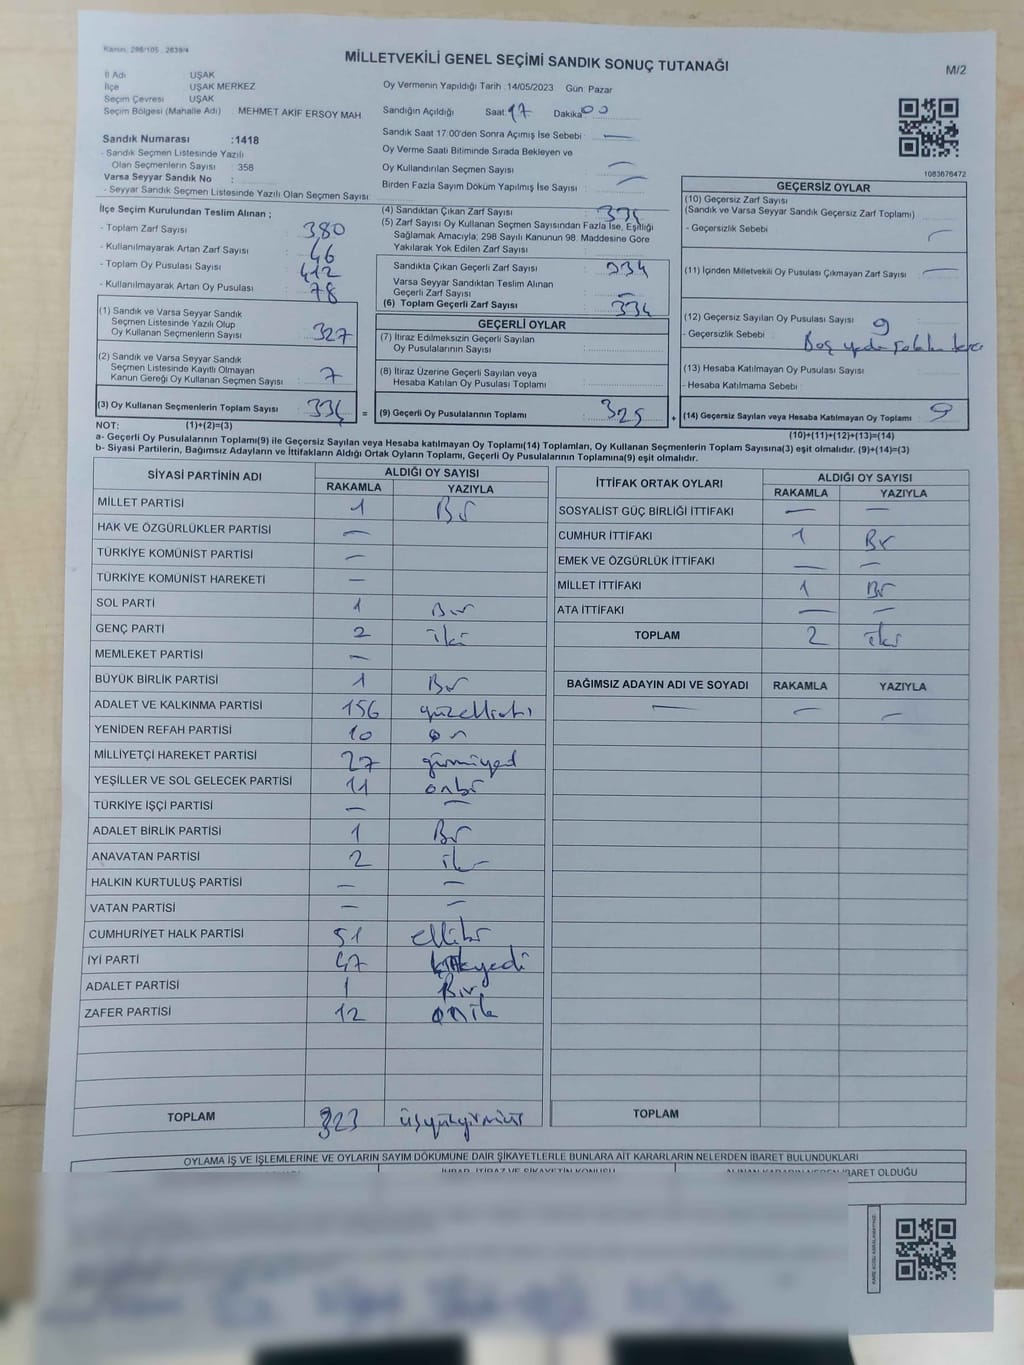 Kanun: 298/105 , 2839/4
MİLLETVEKİLİ GENEL SEÇİMİ SANDIK SONUÇ TUTANAĞI
M/2
İl Adı : UŞAK
İlçe : UŞAK MERKEZ
Seçim Çevresi : UŞAK
Seçim Bölgesi (Mahalle Adı) : MEHMET AKİF ERSOY MAH.
Sandık Numarası :1418
- Sandık Seçmen Listesinde Yazılı
Olan Seçmenlerin Sayısı : 358
Varsa Seyyar Sandık No :
- Seyyar Sandık Seçmen Listesinde Yazılı Olan Seçmen Sayısı:
Oy Vermenin Yapıldığı Tarih : 14/05/2023 Gün: Pazar
Sandığın Açıldığı Saat: 17 Dakika: 00
Sandık Saat 17:00'den Sonra Açımış İse Sebebi : —
Oy Verme Saati Bitiminde Sırada Bekleyen ve
Oy Kullandırılan Seçmen Sayısı : —
Birden Fazla Sayım Döküm Yapılmış İse Sayısı : —
1083676472
İlçe Seçim Kurulundan Teslim Alınan ;
- Toplam Zarf Sayısı : 380
- Kullanılmayarak Artan Zarf Sayısı : 46
- Toplam Oy Pusulası Sayısı : 412
- Kullanılmayarak Artan Oy Pusulası : 78
(1) Sandık ve Varsa Seyyar Sandık
Seçmen Listesinde Yazılı Olup
Oy Kullanan Seçmenlerin Sayısı : 327
(2) Sandık ve Varsa Seyyar Sandık
Seçmen Listesinde Kayıtlı Olmayan
Kanun Gereği Oy Kullanan Seçmen Sayısı : 7
(3) Oy Kullanan Seçmenlerin Toplam Sayısı : 334 =
(4) Sandıktan Çıkan Zarf Sayısı : 334
(5) Zarf Sayısı Oy Kullanan Seçmen Sayısından Fazla İse, Eşitliği
Sağlamak Amacıyla; 298 Sayılı Kanunun 98. Maddesine Göre
Yakılarak Yok Edilen Zarf Sayısı :
Sandıkta Çıkan Geçerli Zarf Sayısı : 334
Varsa Seyyar Sandıktan Teslim Alınan
Geçerli Zarf Sayısı : —
(6) Toplam Geçerli Zarf Sayısı : 334
GEÇERLİ OYLAR
(7) İtiraz Edilmeksizin Geçerli Sayılan
Oy Pusulalarının Sayısı :
(8) İtiraz Üzerine Geçerli Sayılan veya
Hesaba Katılan Oy Pusulası Toplamı :
(9) Geçerli Oy Pusulalarının Toplamı : 325 +
GEÇERSİZ OYLAR
(10) Geçersiz Zarf Sayısı
(Sandık ve Varsa Seyyar Sandık Geçersiz Zarf Toplamı) :
- Geçersizlik Sebebi : —
(11) İçinden Milletvekili Oy Pusulası Çıkmayan Zarf Sayısı : —
(12) Geçersiz Sayılan Oy Pusulası Sayısı : 9
- Geçersizlik Sebebi : Boş
(13) Hesaba Katılmayan Oy Pusulası Sayısı :
- Hesaba Katılmama Sebebi :
(14) Geçersiz Sayılan veya Hesaba Katılmayan Oy Toplamı : 9
NOT: (1)+(2)=(3)
(10)+(11)+(12)+(13)=(14)
a- Geçerli Oy Pusulalarının Toplamı(9) ile Geçersiz Sayılan veya Hesaba katılmayan Oy Toplamı(14) Toplamları, Oy Kullanan Seçmenlerin Toplam Sayısına(3) eşit olmalıdır. (9)+(14)=(3)
b- Siyasi Partilerin, Bağımsız Adayların ve İttifakların Aldığı Ortak Oyların Toplamı, Geçerli Oy Pusulalarının Toplamına(9) eşit olmalıdır.
SİYASİ PARTİNİN ADI ALDIĞI OY SAYISI
RAKAMLA YAZIYLA
MİLLET PARTİSİ 1 Bir
HAK VE ÖZGÜRLÜKLER PARTİSİ —
TÜRKİYE KOMÜNİST PARTİSİ —
TÜRKİYE KOMÜNİST HAREKETİ —
SOL PARTİ 1 Bir
GENÇ PARTİ 2 iki
MEMLEKET PARTİSİ —
BÜYÜK BİRLİK PARTİSİ 1 Bir
ADALET VE KALKINMA PARTİSİ 156 yüzellialtı
YENİDEN REFAH PARTİSİ 10 on
MİLLİYETÇİ HAREKET PARTİSİ 27 yirmiyedi
YEŞİLLER VE SOL GELECEK PARTİSİ 11 onbir
TÜRKİYE İŞÇİ PARTİSİ — —
ADALET BİRLİK PARTİSİ 1 Bir
ANAVATAN PARTİSİ 2 iki
HALKIN KURTULUŞ PARTİSİ — —
VATAN PARTİSİ — —
CUMHURİYET HALK PARTİSİ 51 ellibir
İYİ PARTİ 47 kırkyedi
ADALET PARTİSİ 1 Bir
ZAFER PARTİSİ 12 oniki
TOPLAM 323 üçyüzyirmiüç
İTTİFAK ORTAK OYLARI ALDIĞI OY SAYISI
RAKAMLA YAZIYLA
SOSYALİST GÜÇ BİRLİĞİ İTTİFAKI — —
CUMHUR İTTİFAKI 1 Bir
EMEK VE ÖZGÜRLÜK İTTİFAKI — —
MİLLET İTTİFAKI 1 Bir
ATA İTTİFAKI — —
TOPLAM 2 iki
BAĞIMSIZ ADAYIN ADI VE SOYADI RAKAMLA YAZIYLA
— — —
TOPLAM
OYLAMA İŞ VE İŞLEMLERİNE VE OYLARIN SAYIM DÖKÜMÜNE DAİR ŞİKAYETLERLE BUNLARA AİT KARARLARIN NELERDEN İBARET BULUNDUKLARI